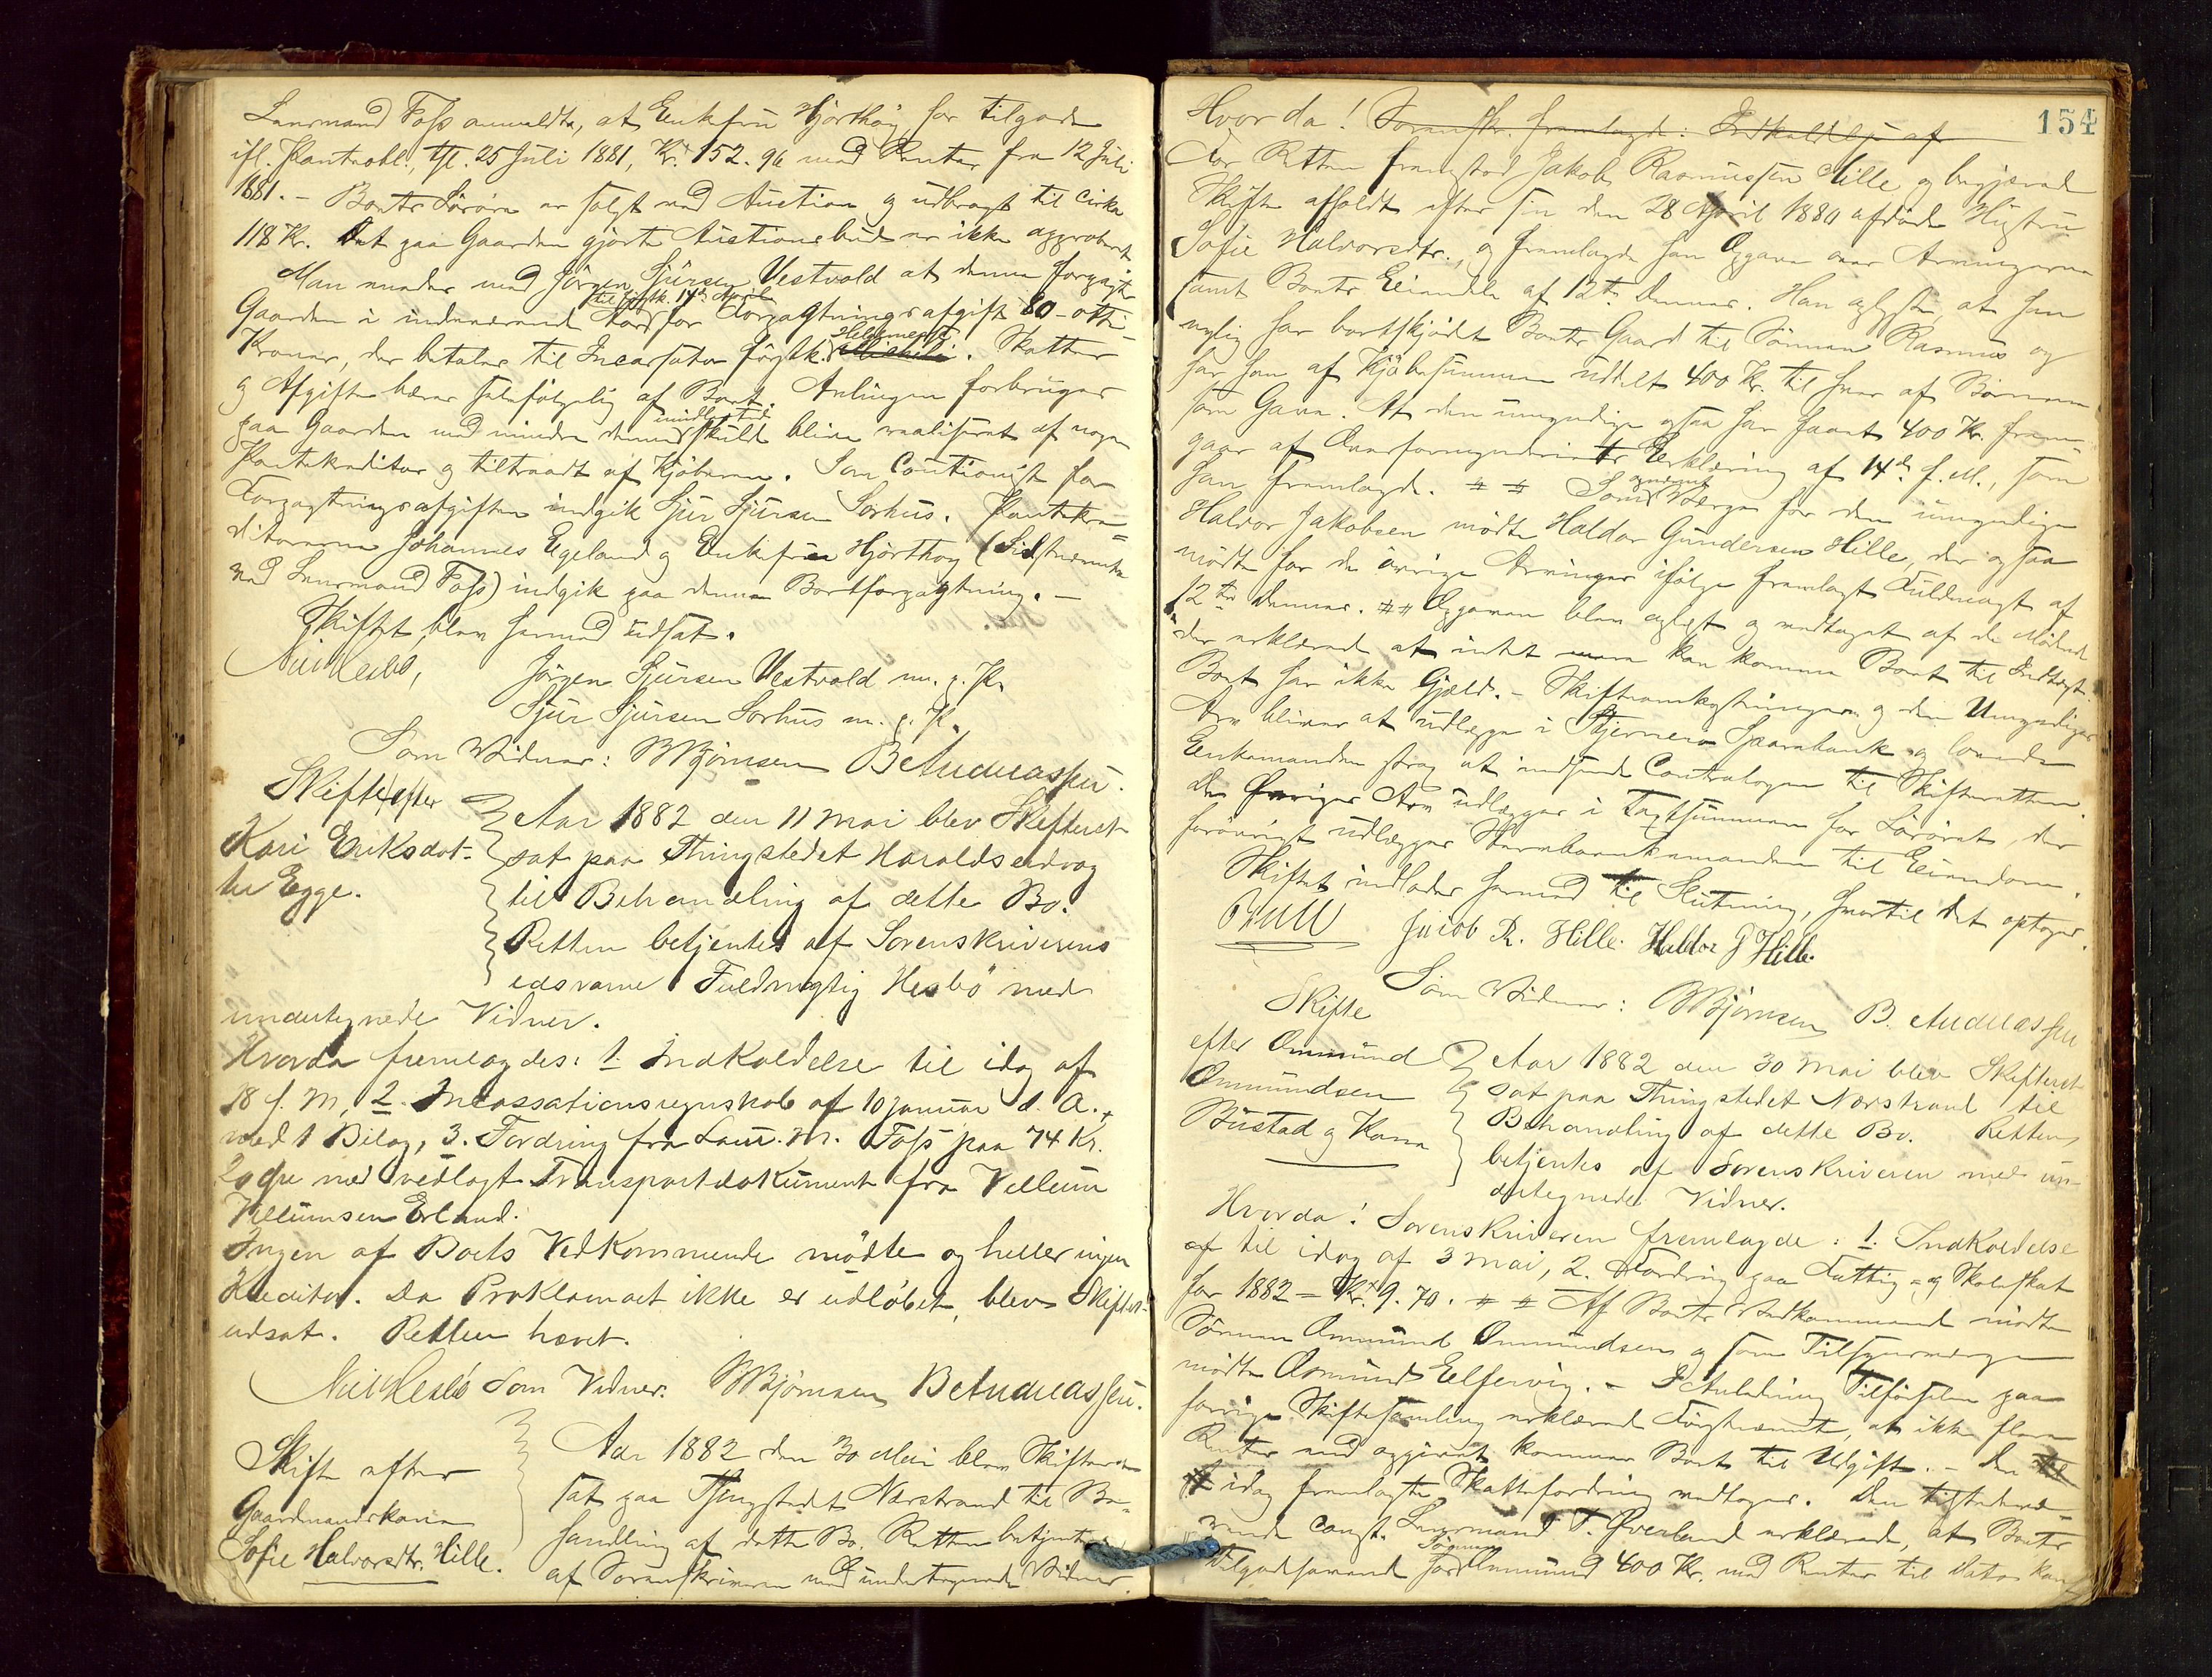 Lensmand Foss anmeldte, at Enkefru Hjorthøy har tilgode
ifl. Panteobl., tgl. 25 Juli 1881, Kr. 152.96 med Renter fra 12 Juli
1881. – Boets Løsøre er solgt ved Auktion og udbragt til cirka
118 Kr. Det paa Gaarden gjorte Auctionsbud er ikke approberet
Man enedes med Jørgen Sjursen Vestvold at denne forpagter
til først k. 14de April
Gaarden i indeværende Aar for Forpagtningsafgift 80 – otti
Helgemesse
Kroner, der betales til Incassator førstk. . Skatter
og Afgifter bæres selvfølgelig af Boet. Avlingen forbruges
imidlertid
paa Gaarden med mindre denne skulde blive realiseret af nogen
Pantekreditor og tiltraadt af Kjøberen. Som Cautionist for
Forpagtningsafgiften indgik Sjur Sjursen Sørhus. Pantekre-
ditorerne Johannes Egeland og Enkefru Hjorthøy (Sidstnævnte
ved Lensmand Foss) indgik paa denne Bortforpagtning. –
Skiftet blev hermed udsat.
Nic Hesbö, Jörgen Sjursen Vestvold m. p. P.
Sjur Sjursen Sørhus m. p. P.
Som Vidner: BBjörnsen B Andreassen.
Skifte efter
Kari Eriksdat-
ter Egge.
Aar 1882 den 11 Mai blev Skifteret
sat paa Thingstedet Haraldseidvag
til Behandling af dette Bo.
Retten betjentes af Sorenskriverens
edsvorne Fuldmægtig Hesbö med
undertegnede Vidner.
Hvorda fremlagdes: 1. Indkaldelse til idag af
18 f. M, 2. Incassationsregnskab af 10 Januar d. A.
med 1 Bilag, 3. Fordring fra Lens. m. Foss paa 74 Kr.
20 Øre med vedlagt Transportdokument fra Vellum
Villumsen Erland.
Ingen af Boets Vedkommende mödte og heller ingen
Kreditor. Da Proklamaet ikke er udlöbet, blev Skiftet
udsat. Retten hævet.
Nic Hesbö Som Vidner. BBjörnsen B Andreassen.
Skifte efter
Gaardmandskone
Sofie Halvorsdtr. Hille.
Aar 1882 den 30 Mai blev Skifteret
sat paa Thingstedet Nerstrand til Be-
handling af dette Bo. Retten betjentes
af Sorenskriveren med undertegnede Vidner.
154
Hvorda! Sorenskr. fremlagde: Indkaldelse af
For Retten fremstod Jakob Rasmussen Hille og begjærede
Skifte afholdt efter sin den 28 April 1880 afdøde Hustru
Sofie Halvorsdtr., og fremlagde han Opgave over Arvingerne
samt Boets Eiendele af 12te dennes. Han oplyste, at han
nylig har bortskjødet Boets Gaard til Sønnen Rasmus og
har han af Kjøbesummen uddelt 400 Kr. til hver af Børnene
som Gave. At den umyndige ogsaa har faaet 400 Kr. frem-
gaar af Overformynderiets Erklæring af 14de f. M., som
han fremlagde. Som Værge for den umyndige
Halvor Jakobsen mødte Haldor Gundersen Hille, der ogsaa
mødte for de øvrige Arvinger ifølge fremlagt Fuldmagt af
12te dennes. Opgaven blev oplæst og vedtaget af de Mødende
der erklærede at intet mere kan komme Boet til Indtægt.
Boet har ikke Gjæld. – Skifteomkostninger og den Umyndiges
Arv bliver at udlægge i Stjernerø Sparebank og lovede
Enkemanden strax at indsende Contrabogen til Skifteretten.
De Øvriges Arv udlægges i Taxtsummen for Løsøret, der
forøvrigt udlægges Sterboenkemanden til Eiendom.
Skiftet indlades hermed til Slutning, hvortil det optages.
Bull Jacob R. Hille. Haldor G Hille.
Som Vidner: BBjörnsen B. Andreassen
Skifte
efter Ommund
Ommundsen
Bustad og Kone
Aar 1882 den 30 Mai blev Skifteret
sat paa Thingstedet Nerstrand til
Behandling af dette Bo. Retten
betjentes af Sorenskriveren med un-
dertegnede Vidner.
Hvorda! Sorenskriveren fremlagde: 1. Indkaldelse
af til idag af 3 Mai, 2. Fordring paa Fattig- og Skoleskat
for 1882 = Kr. 9.70. Af Boets Vedkommende mødte
Sønnen Ommund Ommundsen og som Tilsynsværge
mødte Osmund Eelfervig. – I Anledning Tilførselen paa
forrige Skiftesamling erklærede Førstnævnte, at ikke flere
Renter end opgivet kommer Boet til Udgift. – Den
idag fremlagte Skattefordring vedtoges. Den tilstedevæ-
rende const. Lensmand T. Øverland erklærede, at Boets
Sønnen
Tilgodehavende hos Ommund 400 Kr. med Renter til Dato kan